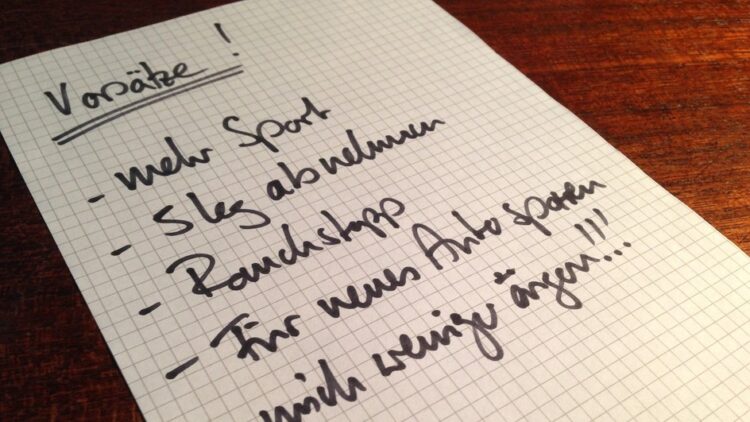 Vorsätze!
- mehr Sport
- 5 kg abnehmen
- Rauchstopp
- Für neues Auto sparen
mich weniger ärgern!!!...